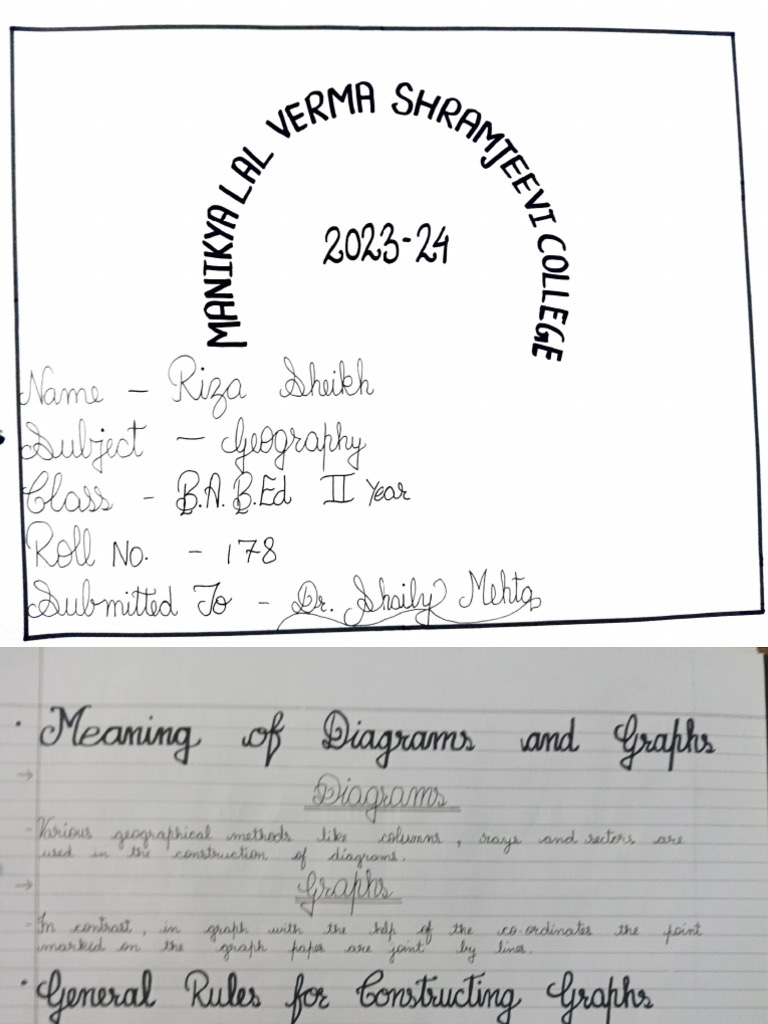 MANIKYA LAL VERMA SHRAMJEEVI COLLEGE
2023-24
Name - Riza Sheikh
Subject - Geography
Class - B.A. B.Ed II Year
Roll No. - 178
Submitted To - Dr. Shaily Mehta
• Meaning of Diagrams and Graphs
→ Diagrams
- Various geographical methods like columns, rays and sectors are
used in the construction of diagrams.
→ Graphs
- In contrast, in graph with the help of the co-ordinates the point
marked on the graph paper are joint by lines.
• General Rules for Constructing Graphs